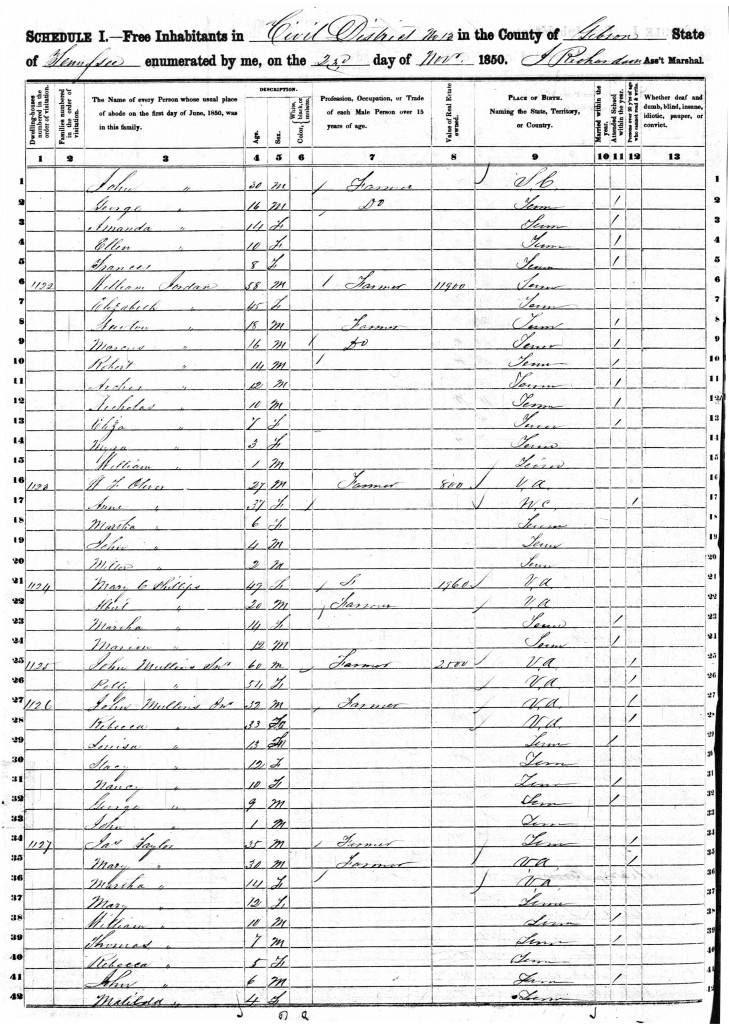 SCHEDULE I.—Free Inhabitants in Civil District No 12 in the County of Gibson State
of Tennessee enumerated by me, on the 2nd day of Novr. 1850. J Richardson Ass't Marshal.
Dwelling-houses numbered in the order of visitation.
Families numbered in the order of visitation.
The Name of every Person whose usual place of abode on the first day of June, 1850, was in this family.
DESCRIPTION.
Age.
Sex.
White, black, or mulatto. Color,
Profession, Occupation, or Trade of each Male Person over 15 years of age.
Value of Real Estate owned.
PLACE OF BIRTH. Naming the State, Territory, or Country.
Married within the year.
Attended School within the year.
Persons over 20 y'rs of age who cannot read & write.
Whether deaf and dumb, blind, insane, idiotic, pauper, or convict.
1 2 3 4 5 6 7 8 9 10 11 12 13
1 John " 30 M Farmer S.C. 1
2 George " 16 M Do Tenn / 2
3 Amanda " 14 F Tenn / 3
4 Ellen " 10 F Tenn / 4
5 Frances 8 F Tenn / 5
6 1122 William Jordan 58 M Farmer 11900 Tenn 6
7 Elizabeth " 45 F Tenn 7
8 " 18 M Farmer Tenn / 8
9 Marcus " 16 M Do Tenn / 9
10 Robert " 14 M Tenn / 10
11 Archer " 12 M Tenn / 11
12 Nicholas " 10 M Tenn / 12
13 Eliza " 7 F Tenn / 13
14 " 3 F Tenn 14
15 William " 1 M Tenn 15
16 1123 Oliver 27 M Farmer 800 V.A. 16
17 Anne " 37 F N.C. / 17
18 Martha " 6 F Tenn 18
19 John " 4 M Tenn 19
20 " 2 M Tenn 20
21 1124 Mary C Phillips 49 F 1960 V.A 21
22 " 20 M Farmer V.A 22
23 Martha " 14 F Tenn / 23
24 Marion " 12 M Tenn / 24
25 1125 John Mullins Snr 60 M Farmer 2500 V.A / 25
26 Polly " 54 F V.A / 26
27 1126 John Mullins Jnr 32 M Farmer V.A. / 27
28 Rebecca " 33 F V.A. / 28
29 Louisa " 13 F Tenn / 29
30 Stacy " 12 F Tenn 30
31 Nancy " 10 F Tenn / 31
32 George " 9 M Tenn / 32
33 John " 1 M Tenn 33
34 1127 Jas Taylor 35 M Farmer Tenn / 34
35 Mary " 30 M Farmer V.A. / 35
36 Martha " 14 F V.A. 36
37 Mary " 12 F Tenn 37
38 William " 10 M Tenn / 38
39 Thomas " 7 M Tenn / 39
40 Rebecca " 5 F Tenn 40
41 John " 6 M Tenn / 41
42 Matilda " 4 F Tenn 42